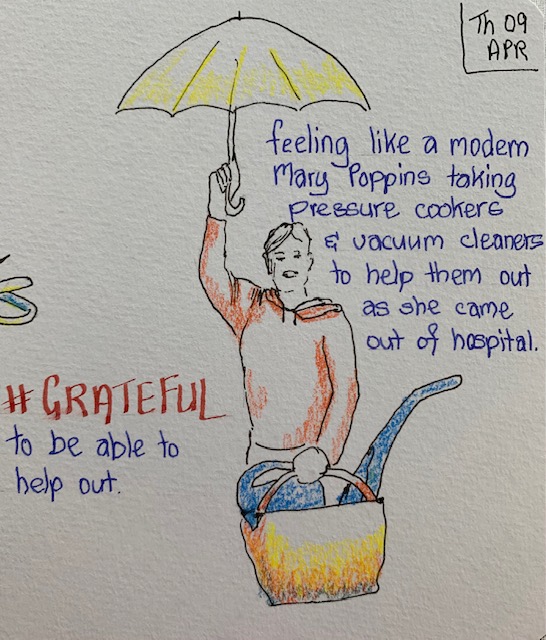 Th 09
APR
feeling like a modern
Mary Poppins taking
pressure cookers
& vacuum cleaners
to help them out
as she came
out of hospital.
#GRATEFUL
to be able to
help out.